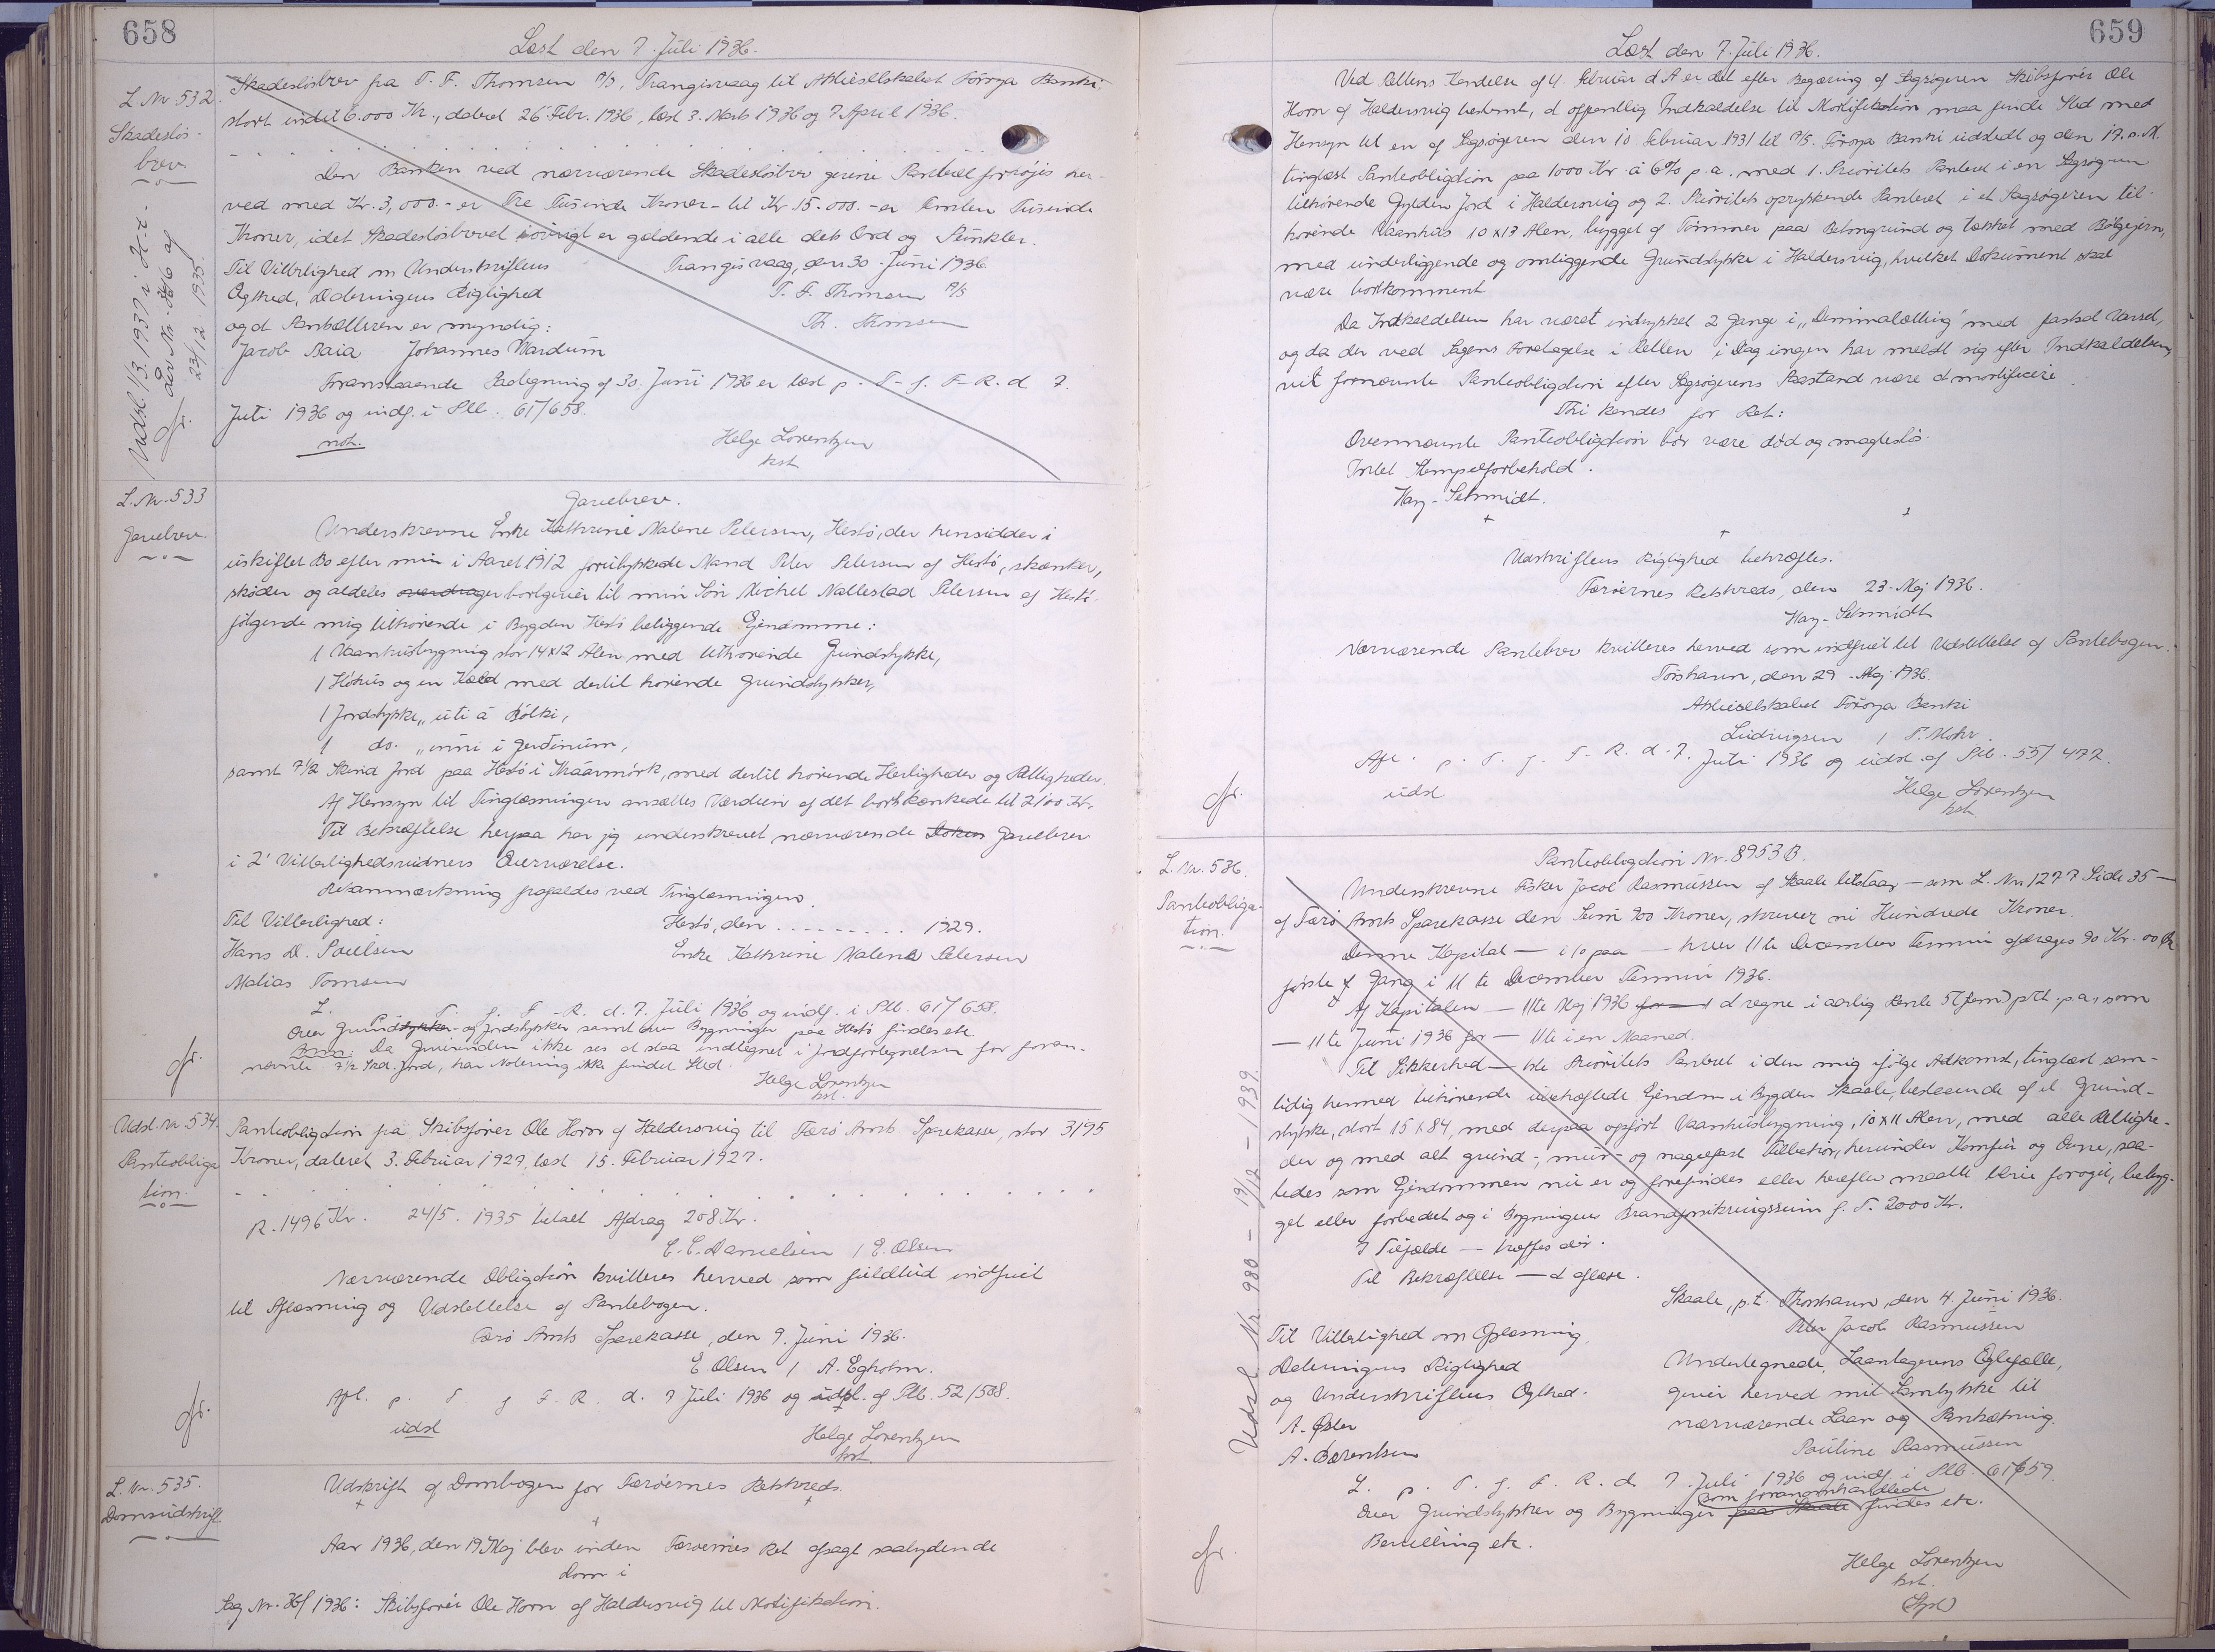 658
Læst den 7. Juli 1936.
L. Nr. 532.
Skadesløs-
brev.
Skadesløsbrev fra T. F. Thomsen A/S, Trangisvaag til Aktieselskabet Föroya Banki
stort indtil 6.000 Kr., dateret 26' Febr. 1936, læst 3. Marts 1936 og 7 April 1936.
Den Banken ved nærværende Skadesløsbrev givne Panteret forhøjes her-
ved med Kr. 3,000.- er Tre Tusinde Kroner- til Kr. 15.000.- er Femten Tusinde
Kroner, idet Skadesløsbrevet iövrigt er gældende i alle dets Ord og Punkter.
Til Vitterlighed om Underskriftens
Trangisvaag, den 30. Juni 1936
Ægthed, Dateringens Rigtighed
T. F. Thomsen A/S
og at Pantsætteren er myndig:
Th. Thomsen
Jacob Naia Johannes Vardum
Foranstaaende Paategning af 30. Juni 1936 er læst p. T. f. F. R. d. 7.
Juli 1936 og indf. i Plb. 61/658.
not.
Helge Lorentzen
kst
L. Nr. 533
Gavebrev.
Gavebrev.
Underskrevne Enke Kathrine Malene Petersen, Hestö, der hensidder i
uskiftet Bo efter min i Aaret 1912 forulykkede Mand Peter Petersen af Hestö, skænker,
skøder og aldeles overdrager bortgiver til min Søn Michel Nallestad Petersen af Hestö
følgende mig tilhørende i Bygden Hestö beliggende Ejendomme:
1 Vaanhusbygning stor 14x12 Alen med tilhørende Grundstykke,
1 Höhus og en Kæld med dertil hørende Grundstykker,
1 Jordstykke „uti á Bölki,
1 do. „inni i Gerdinum,
samt 7 1/2 Skind Jord paa Hestö i Káarmörk, med dertil hørende Herligheder og Rettigheder.
Af Hensyn til Tinglæsningen ansættes Værdien af det bortskænkede til 2100 Kr.
Til Bekræftelse herpaa har jeg underskrevet nærværende Doku Gavebrev
i 2 Vitterlighedsvidners Overværelse.
Retsanmærkning frafaldes ved Tinglæsningen.
Til Vitterlighed:
Hestö, den ......... 1929.
Hans D. Poulsen
Enke Kathrine Malene Petersen
Matias Tomsen
L. p. T. f. F. R. d. 7. Juli 1936 og indf. i Plb. 61/658.
Over Grundstykker og Jordstykker samt over Bygninger paa Hestö findes etc.
Anm: Da Giverinden ikke ses at staa indtegnet i Jordfortegnelsen for foran-
nævnte 7 1/2 Skd. Jord, har Notering ikke fundet Sted.
Helge Lorentzen
kst.
Udsl. Nr 534.
Panteobliga
tion.
Panteobligation fra Skibsfører Ole Horn af Haldersvig til Færö Amts Sparekasse, stor 3195
Kroner, dateret 3. Februar 1927, læst 15. Februar 1927.
R. 1496 Kr. 24/5. 1935 betalt Afdrag 208 Kr.
C. C. Danielsen / E. Olsen
Nærværende Obligation kvitteres herved som fuldtud indfriet
til Aflæsning og Udslettelse af Pantebogen.
Færö Amts Sparekasse, den 9. Juni 1936.
E. Olsen / A. Egholm.
Afl. p. T f F. R. d. 7 Juli 1936 og udsl. af Plb. 52/508.
udsl
Helge Lorentzen
kst
L. Nr. 535.
Domsudskrift
Udskrift af Dombogen for Færöernes Retskreds.
Aar 1936, den 19 Maj blev inden Færöernes Ret afsagt saalydende
Dom i
Sag Nr. 36/1936: Skibsfører Ole Horn af Haldersvig til Mortifikation.
659
Læst den 7. Juli 1936.
Ved Rettens Kendelse af 4. Februar d. A. er det efter Begæring af Sagsøgeren Skibsfører Ole
Horn af Haldersvig bestemt, at offentlig Indkaldelse til Mortifikation maa finde Sted med
Hensyn til en af Sagsøgeren den 10 Februar 1931 til A/S. Föroya Banki udstedt og den 17. s. M.
tinglæst Panteobligation paa 1000 Kr. á 6% p.a. med 1. Prioritets Panteret i en Sagsøgeren
tilhørende Gylden Jord i Haldersvig og 2. Prioritets oprykkende Panteret i et Sagsøgeren til-
hørende Vaanhus 10 x 13 Alen, bygget af Tømmer paa Betongrund og tækket med Bølgejern,
med underliggende og omliggende Grundstykke i Haldersvig, hvilket Dokument skal
være bortkommet
Da Indkaldelsen har været indrykket 2 Gange i „Dimmalætting" med fastsat Varsel,
og da der ved Sagens Foretagelse i Retten i Dag ingen har meldt sig efter Indkaldelsen,
vil fornævnte Panteobligation efter Sagsøgerens Paastand være at mortificere
Thi kendes for Ret:
Ovennævnte Panteobligation bør være død og magtesløs.
Intet Stempelforbehold.
Hay-Schmidt.
Udskriftens Rigtighed bekræftes.
Færöernes Retskreds, den 23. Maj 1936.
Hay-Schmidt
Nærværende Pantebrev kvitteres herved som indfriet til Udslettelse af Pantebogen.
Torshavn, den 29. Maj 1936.
Aktieselskabet Föroya Banki
Ludvigsen / P. Mohr.
Afl. p. T. f. F. R. d. 7. Juli 1936 og udsl. af Plb. 55/472.
udsl
Helge Lorentzen
kst
L. Nr. 536.
Panteobliga-
tion.
Panteobligation Nr. 8953 B.
Underskrevne Fisker Jacob Rasmussen af Skaale tilstaar - som L. Nr 1277 Side 35 -
af Færö Amts Sparekasse den Sum 900 Kroner, skriver ni Hundrede Kroner.
Denne Kapital - i 10 paa - hver 11te December Termin afdrages 90 Kr. 00 Ør
første Gang i 11te December Termin 1936.
Af Kapitalen - 11te Maj 1936 for at regne i aarlig Rente 5 (fem) pCt. p.a., som
- 11te Juni 1936 for - 11te i en Maaned.
Til Sikkerhed - 1ste Prioritets Panteret i den mig ifølge Adkomst, tinglæst sam-
tidig hermed tilhørende ubehæftede Ejendom i Bygden Skaale, bestaaende af et Grund-
stykke, stort 15 x 84, med derpaa opført Vaanhusbygning, 10 x 11 Alen, med alle Rettighe-
der og med alt grund-, mur- og nagelfast Tilbehør, herunder Komfur og Ovne, saa-
ledes som Ejendommen nu er og forefindes eller herefter maatte blive forøget, bebyg-
get eller forbedret og i Bygningens Brandforsikringssum p. T. 2000 Kr.
I Tilfælde - træffes dér.
Til Bekræftelse - at aflæse.
Skaale, p.t. Thorshavn, den 4. Juni 1936.
Til Vitterlighed om Oplæsning,
Peter Jacob Rasmussen
Dateringens Rigtighed
Undertegnede, Laantagerens Ægtefælle,
og Underskriftens Ægthed.
giver herved mit Samtykke til
A. Øster
nærværende Laan og Pantsætning.
A. Bærentsen
Pauline Rasmussen
L. p. T. f. F. R. d. 7. Juli 1936 og indf. i Plb. 61/659.
som foranomhandlede
Over Grundstykker og Bygninger paa Skaale findes etc.
Bevilling etc.
Helge Lorentzen
kst.
Udsl. Nr. 980 - 19/12 - 1939.